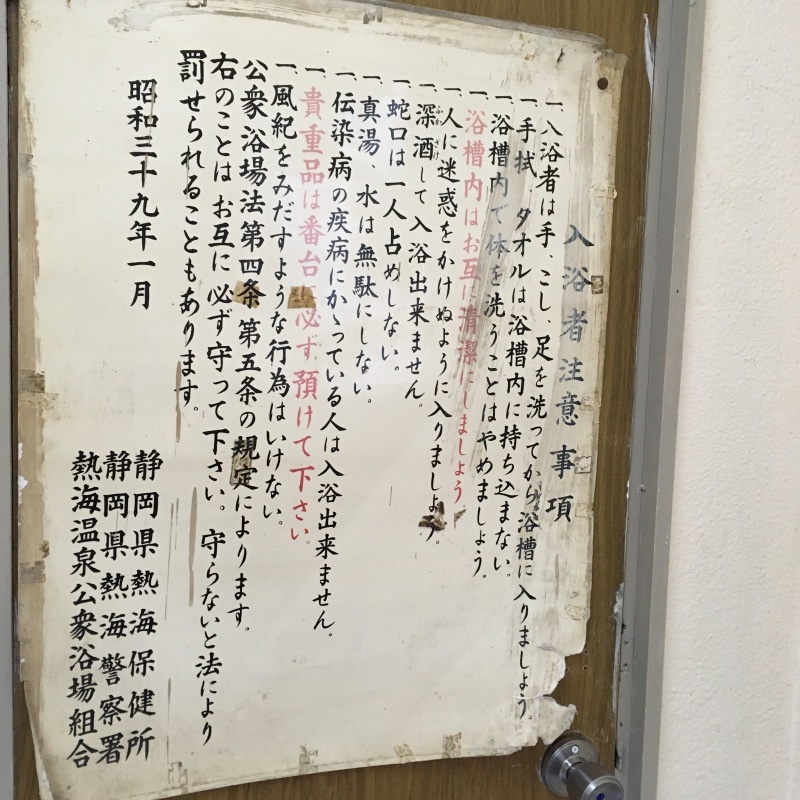 入浴者注意事項
一、入浴者は手、こし、足を洗ってから浴槽に入りましょう。
一、手拭、タオルは浴槽内に持ち込まない。
一、浴槽内で体を洗うことはやめましょう。
一、浴槽内はお互に清潔にしましょう
一、人に迷惑をかけぬように入りましょう。
一、深酒して入浴出来ません。
ふか ざけ
一、蛇口は一人占めしない。
一、真湯、水は無駄にしない。
一、伝染病の疾病にかゝっている人は入浴出来ません。
一、貴重品は番台に必ず預けて下さい。
一、風紀をみだすような行為はいけない。
公衆浴場法第四条 第五条の規定によります。
右のことは お互に必ず守って下さい。守らないと法により
罰せられることもあります。
昭和三十九年一月
静岡県熱海保健所
静岡県熱海警察署
熱海温泉公衆浴場組合